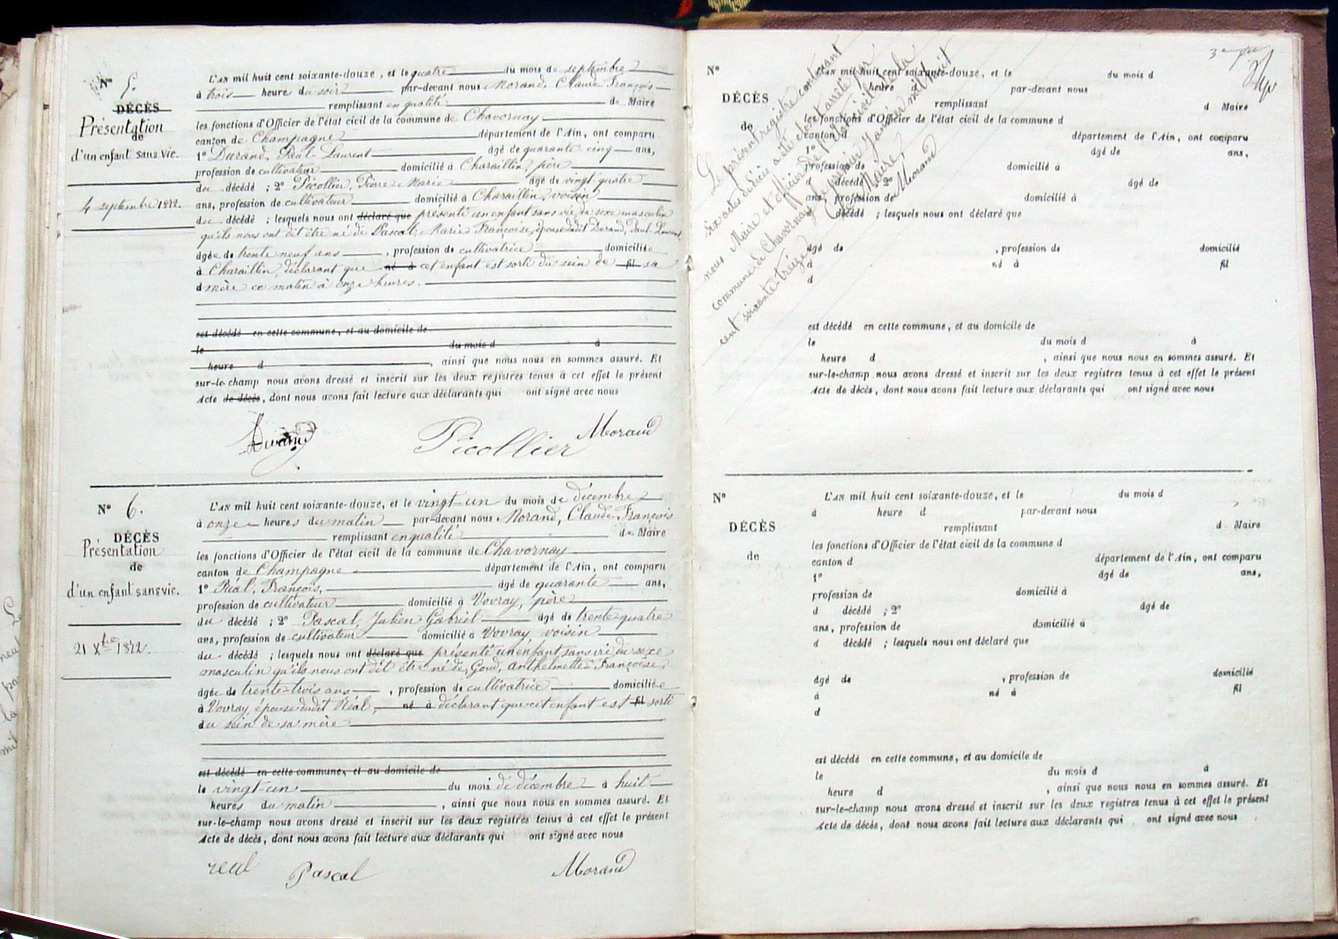 N° 5.
DÉCÈS
Présentation
de
d'un enfant sans vie.
4 septembre 1872.
L'AN mil huit cent soixante-douze, et le quatre du mois de septembre
à trois heure du soir par-devant nous Morand, Claude François
remplissant en qualité de Maire
les fonctions d'Officier de l'état civil de la commune de Chavornay
canton de Champagne département de l'Ain, ont comparu
1° Durand, Paul Laurent âgé de quarante cinq ans,
profession de cultivateur domicilié à Charaillin, père
du décédé ; 2° Picollier, Pierre Marie âgé de vingt quatre
ans, profession de cultivateur domicilié à Charaillin, voisin
du décédé ; lesquels nous ont déclaré que présenté un enfant sans vie du sexe masculin
qu'ils nous ont dit être né de Pascal, Marie Françoise, épouse dudit Durand, Paul Laurent
âgée de trente neuf ans, profession de cultivatrice domiciliée
à Charaillin, déclarant que né à cet enfant est sorti du sein de fil sa
d mère ce matin à onze heures.
est décédé en cette commune, et au domicile de
le du mois d à
heure d , ainsi que nous nous en sommes assuré. Et
sur-le-champ nous avons dressé et inscrit sur les deux registres tenus à cet effet le présent
Acte de décès, dont nous avons fait lecture aux déclarants qui ont signé avec nous
Durand Picollier Morand
N° 6.
DÉCÈS
Présentation
de
d'un enfant sans vie.
21 Xbre 1872.
L'AN mil huit cent soixante-douze, et le vingt-un du mois de décembre
à onze heures du matin par-devant nous Morand, Claude François
remplissant en qualité de Maire
les fonctions d'Officier de l'état civil de la commune de Chavornay
canton de Champagne département de l'Ain, ont comparu
1° Réal, François, âgé de quarante ans,
profession de cultivateur domicilié à Vovray, père
du décédé ; 2° Pascal, Julien Gabriel âgé de trente quatre
ans, profession de cultivateur domicilié à Vovray voisin
du décédé ; lesquels nous ont déclaré que présenté un enfant sans vie du sexe
masculin qu'ils nous ont dit être né de Goud, Anthelmette Françoise,
âgée de trente-trois ans, profession de cultivatrice domiciliée
à Vovray épouse dudit Réal, né à déclarant que cet enfant est fil sorti
du sein de sa mère
est décédé en cette commune, et au domicile de
le vingt-un du mois de décembre à huit
heures du matin , ainsi que nous nous en sommes assuré. Et
sur-le-champ nous avons dressé et inscrit sur les deux registres tenus à cet effet le présent
Acte de décès, dont nous avons fait lecture aux déclarants qui ont signé avec nous
real Pascal Morand
Le présent registre contenant
six actes de décès a été clos et arrêté par
nous Maire et officier de l'état civil de la
commune de Chavornay le premier Janvier mil huit
cent soixante-treize
Le Maire
Morand
N°
DÉCÈS
de
L'AN mil huit cent soixante-douze, et le du mois d
à heure d par-devant nous
remplissant d Maire
les fonctions d'Officier de l'état civil de la commune d
canton d département de l'Ain, ont comparu
1° âgé de ans,
profession de domicilié à
d décédé ; 2° âgé de
ans, profession de domicilié à
d décédé ; lesquels nous ont déclaré que
âgé de , profession de domicilié
à né à fil
d
est décédé en cette commune, et au domicile de
le du mois d à
heure d , ainsi que nous nous en sommes assuré. Et
sur-le-champ nous avons dressé et inscrit sur les deux registres tenus à cet effet le présent
Acte de décès, dont nous avons fait lecture aux déclarants qui ont signé avec nous
N°
DÉCÈS
de
L'AN mil huit cent soixante-douze, et le du mois d
à heure d par-devant nous
remplissant d Maire
les fonctions d'Officier de l'état civil de la commune d
canton d département de l'Ain, ont comparu
1° âgé de ans,
profession de domicilié à
d décédé ; 2° âgé de
ans, profession de domicilié à
d décédé ; lesquels nous ont déclaré que
âgé de , profession de domicilié
à né à fil
d
est décédé en cette commune, et au domicile de
le du mois d à
heure d , ainsi que nous nous en sommes assuré. Et
sur-le-champ nous avons dressé et inscrit sur les deux registres tenus à cet effet le présent
Acte de décès, dont nous avons fait lecture aux déclarants qui ont signé avec nous